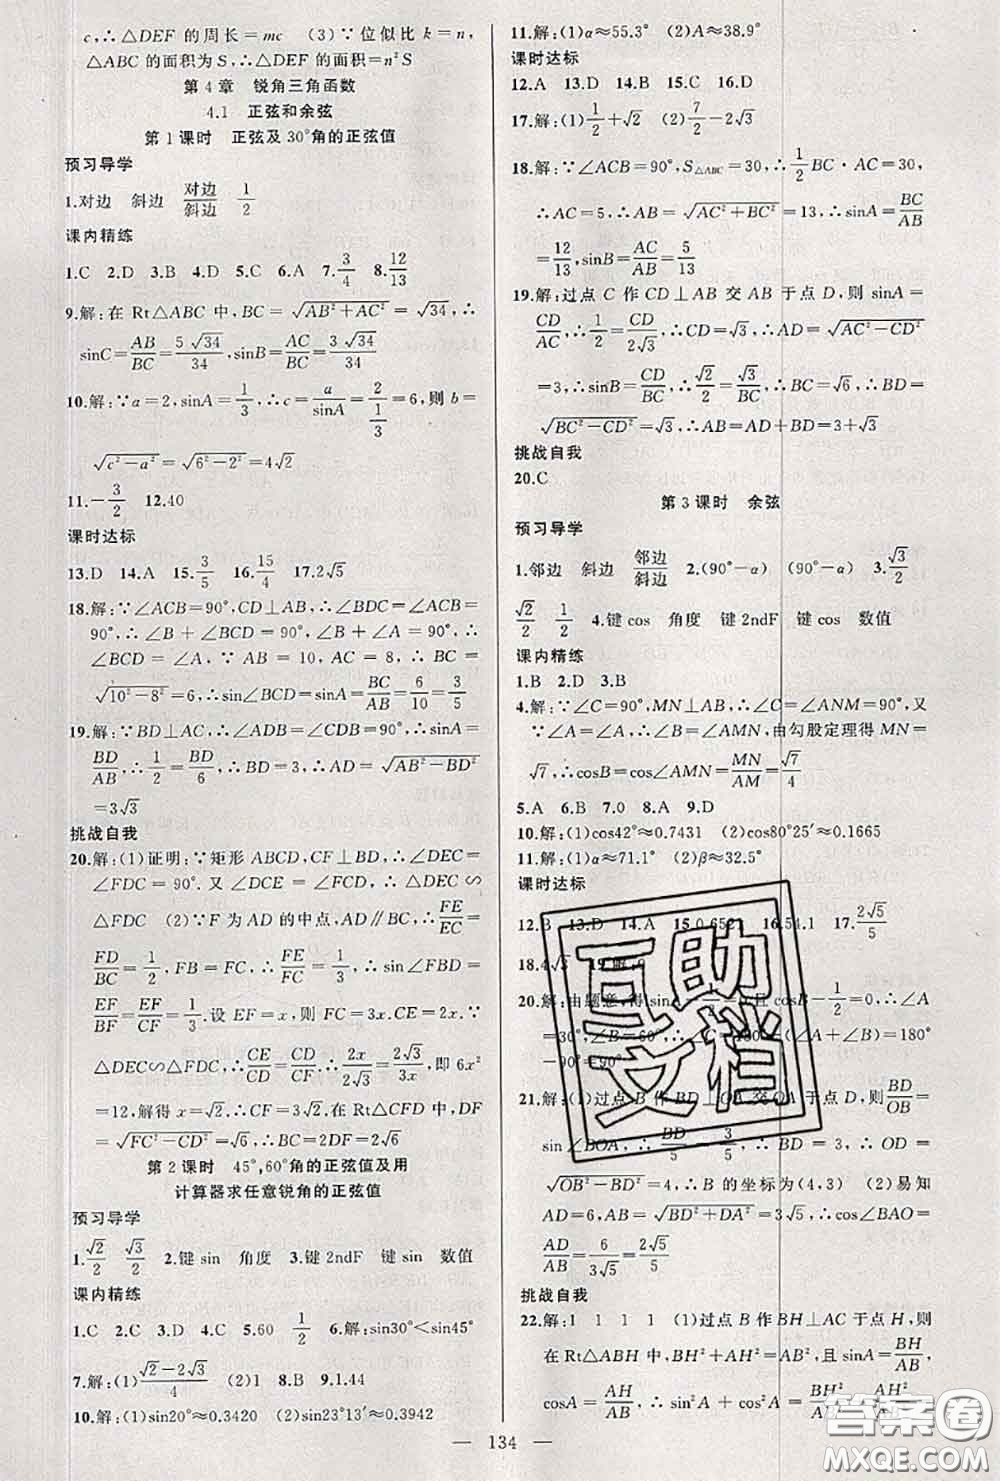 c,∴△DEF 的周长=mc　(3)∵位似比 k=n,
△ABC 的面积为 S,∴△DEF 的面积=n²S
第 4 章　锐角三角函数
4.1　正弦和余弦
第 1 课时　正弦及 30°角的正弦值
预习导学
1.对边　斜边　对边/斜边　1/2
课内精练
1.C　2.D　3.B　4.D　5.C　6.A　7.3/4　8.12/13
9.解:在 Rt△ABC 中,BC=√(AB²+AC²)=√34,∴
sinC=AB/BC=5√34/34,sinB=AC/BC=3√34/34
10.解:∵a=2,sinA=1/3,∴c=a/sinA=2/(1/3)=6,则 b=
√(c²-a²)=√(6²-2²)=4√2
11.-3/2　12.40
课时达标
13.D　14.A　15.3/5　16.15/4　17.2√5
18.解:∵∠ACB=90°,CD⊥AB,∴∠BDC=∠ACB=
90°,∴∠B+∠BCD=90°,∠B+∠A=90°,∴
∠BCD=∠A,∵AB=10,AC=8,∴BC=
√(10²-8²)=6,∴sin∠BCD=BC/AB=6/10=3/5
19.解:∵BD⊥AC,∴∠ADB=∠CDB=90°,∵sinA=
BD/AB,∴1/2=BD/6,∴BD=3,∴AD=√(AB²-BD²)
=3√3
挑战自我
20.解:(1)证明:∵矩形 ABCD,CF⊥BD,∴∠DEC=
∠FDC=90°.又∠DCE=∠FCD,∴△DEC∽
△FDC　(2)∵F 为 AD 的中点,AD∥BC,∴FE/EC=
FD/BC=1/2,FB=FC,∴FE/FC=1/3,∴sin∠FBD=
EF/BF=EF/CF=1/3.设 EF=x,则 FC=3x,CE=2x.∵
△DEC∽△FDC,∴CE/CD=CD/CF,∴2x/2√3=2√3/3x,即 6x²
=12,解得 x=√2,∴CF=3√2,在 Rt△CFD 中,DF
=√(FC²-CD²)=√6,∴BC=2DF=2√6
第 2 课时　45°,60°角的正弦值及用
计算器求任意锐角的正弦值
预习导学
1.√2/2　√3/2　2.键 sin　角度　3.键 2ndF　键 sin　数值
课内精练
1.C　2.C　3.D　4.C　5.60　1/2　6.解:sin30°<sin45°
7.解:(1)(√2-2√3)/4　(2)1　8.B　9.1.44
10.解:(1)sin20°≈0.3420　(2)sin23°13′≈0.3942
11.解:(1)α≈55.3°　(2)A≈38.9°
课时达标
12.A　13.D　14.A　15.C　16.D
17.解:(1)1/2+√2　(2)7/2-√3
18.解:∵∠ACB=90°,S△ABC=30,∴1/2BC·AC=30,
∴AC=5,∴AB=√(AC²+BC²)=13,∴sinA=BC/AB
=12/13,sinB=AC/AB=5/13
19.解:过点 C 作 CD⊥AB 交 AB 于点 D,则 sinA=
CD/AC,∴1/2=CD/2√3,∴CD=√3,∴AD=√(AC²-CD²)
=3,∵sinB=CD/BC,∴√2/2=√3/BC,∴BC=√6,∴BD=
√(BC²-CD²)=√3,∴AB=AD+BD=3+√3
挑战自我
20.C
第 3 课时　余弦
预习导学
1.邻边　斜边　邻边/斜边　2.(90°-α)　(90°-α)　3.√3/2
√2/2　1/2　4.键 cos　角度　键 2ndF　键 cos　数值
课内精练
1.B　2.D　3.B
4.解:∵∠C=90°,MN⊥AB,∴∠C=∠ANM=90°,又
∵∠A=∠A,∴∠B=∠AMN,由勾股定理得 MN=
√7,∴cosB=cos∠AMN=MN/AM=√7/4
5.A　6.B　7.0　8.A　9.D
10.解:(1)cos42°≈0.7431　(2)cos80°25′≈0.1665
11.解:(1)α≈71.1°　(2)β≈32.5°
课时达标
12.B　13.D　14.A　15.0.6521　16.54.1　17.2√5/5
18.4√3　19.解:
20.解:由题意,得 sinA-1/2=0 且 cosB-1/2=0,∴∠A
=30°,∠B=60°,∴∠C=180°-(∠A+∠B)=180°
-90°=90°
21.解:(1)过点 B 作 BD⊥OA 交 OA 于点 D,则 BD/OB=
sin∠BOA,∴BD/5=3/5,∴BD=3,∴OD=
√(OB²-BD²)=4,∴B 的坐标为(4,3)　(2)易知
AD=6,AB=√(BD²+DA²)=3√5,∴cos∠BAO=
AD/AB=6/3√5=2√5/5
挑战自我
22.解:1　1　1　1　(1)过点 B 作 BH⊥AC 于点 H,则
在 Rt△ABH 中,BH²+AH²=AB²,且 sinA=BH/AB,
cosA=AH/AB,∴sin²A+cos²A=BH²/AB²+
— 134 —
互助文档
答案圈
MXQE.COM